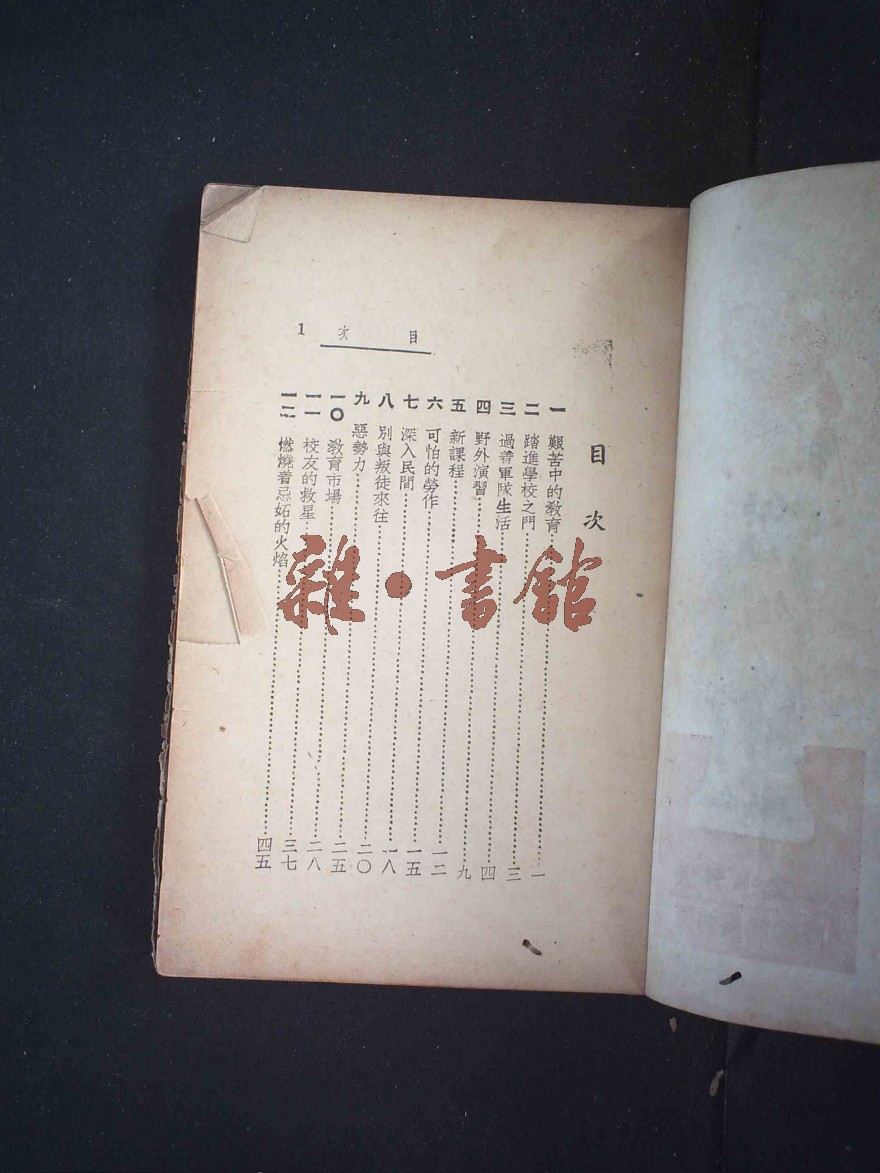 目 次 1
目 次
一 艱苦中的敎育 一
二 踏進學校之門 三
三 過着軍隊生活 四
四 野外演習 九
五 新課程 一二
六 可怕的勞作 一五
七 深入民間 一八
八 別與叛徒來往 二〇
九 惡勢力 二五
一〇 敎育市場 二八
一一 校友的救星 三七
一二 燃燒着忌妬的火焰 四五
雜·書館